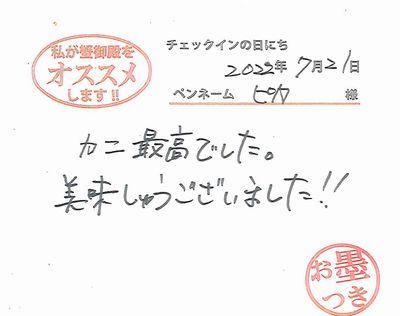 私が蟹御殿を
オススメ
します!!
チェックインの日にち
2022年 7月21日
ペンネーム ピカ 様
カニ最高でした。
美味しゅうございました!!
お墨
つき